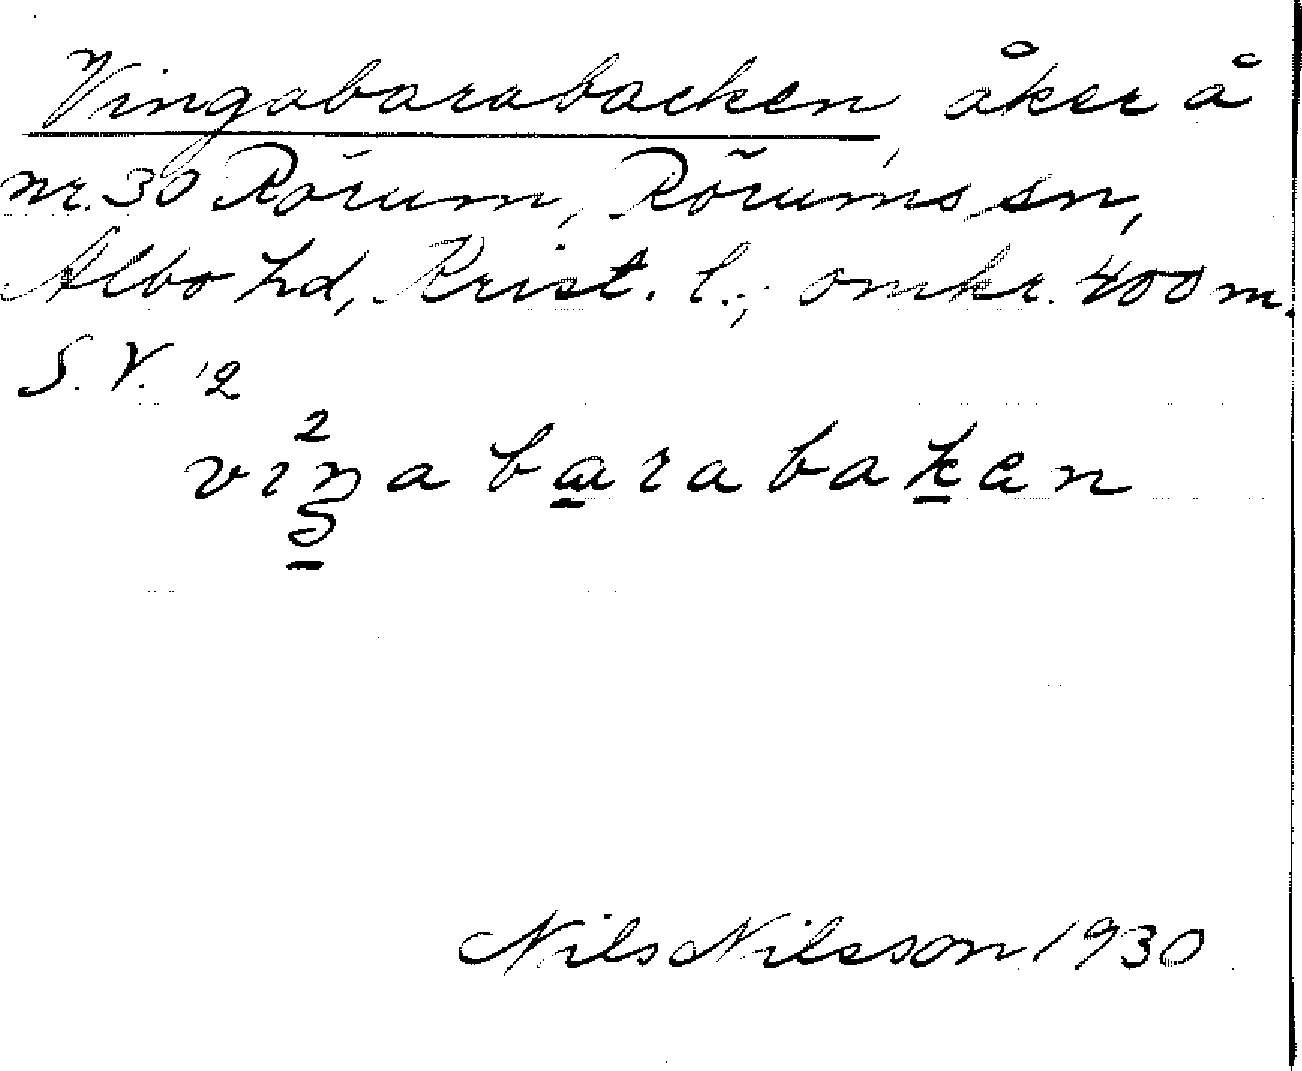 Vingabarabacken, åker å
nr. 30 Rörum, Rörums sn,
Albo hd, Krist. l.; omkr. 400 m.
S.V. '2
2
viŋabarabaken
Nils Nilsson 1930